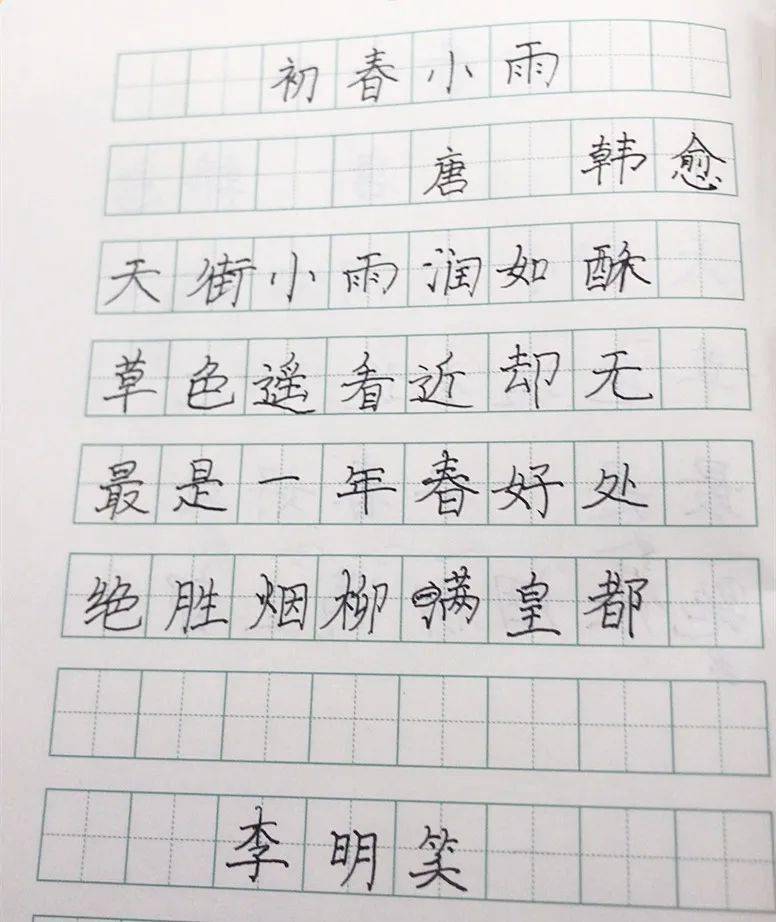 初春小雨
唐 韩愈
天街小雨润如酥
草色遥看近却无
最是一年春好处
绝胜烟柳满皇都
李明笑